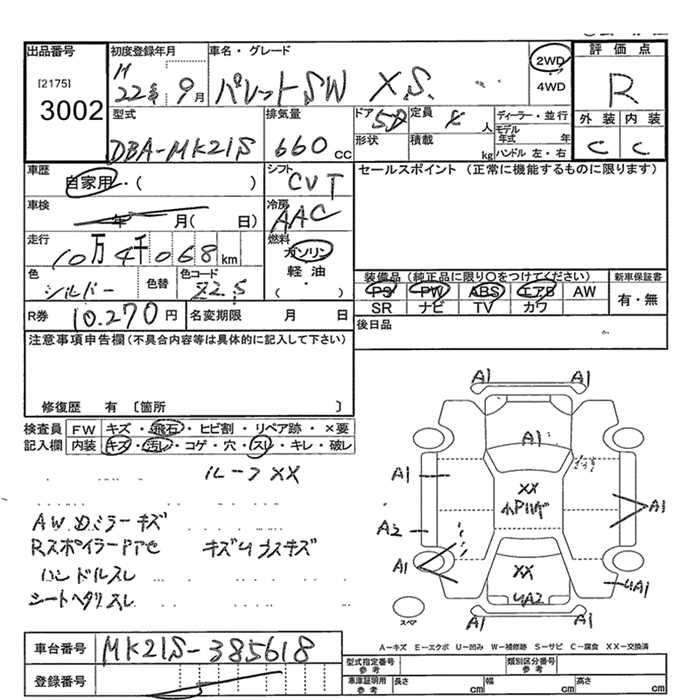 出品番号
[2175]
3002
初度登録年月
H
22年 9月
車名・グレード
パレットSW XS
2WD
4WD
評価点
R
外装 内装
C C
型式
DBA-MK21S
排気量
660 cc
ドア 5D
形状
定員 人
積載 kg
ディーラー・並行
モデル年式 年
ハンドル 左・右
車歴
自家用・( )
シフト
CVT
セールスポイント (正常に機能するものに限ります)
車検
年 月( 日)
冷房
AAC
走行
10万4千068 km
燃料
ガソリン
軽油
( )
色
シルバー
色替
色コード
Z2S
装備品 (純正品に限り〇をつけてください)
PS PW ABS エアB AW
SR ナビ TV カワ
新車保証書
有・無
R券 10.270円
名変期限 月 日
後日品
注意事項申告欄(不具合内容等は具体的に記入して下さい)
修復歴 有 〔箇所 〕
検査員
記入欄
FW キズ・飛石・ヒビ割・リペア跡・×要
内装 キズ・汚レ・コゲ・穴・スレ・キレ・破レ
ルーフXX
AW Dミラーキズ
RスポイラードアC キズ
ハンドルスレ
シートヘタリスレ
A1 A1
A1
A1
XX
A1
A2
A1
XX
A1
A1 A1
スペア
A-キズ E-エクボ U-凹み W-補修跡 S-サビ C-腐食 XX-交換済
車台番号 MK21S-385618
登録番号
型式指定番号 参考
類別区分番号 参考
車庫証明用 参考
長さ cm
幅 cm
高さ cm